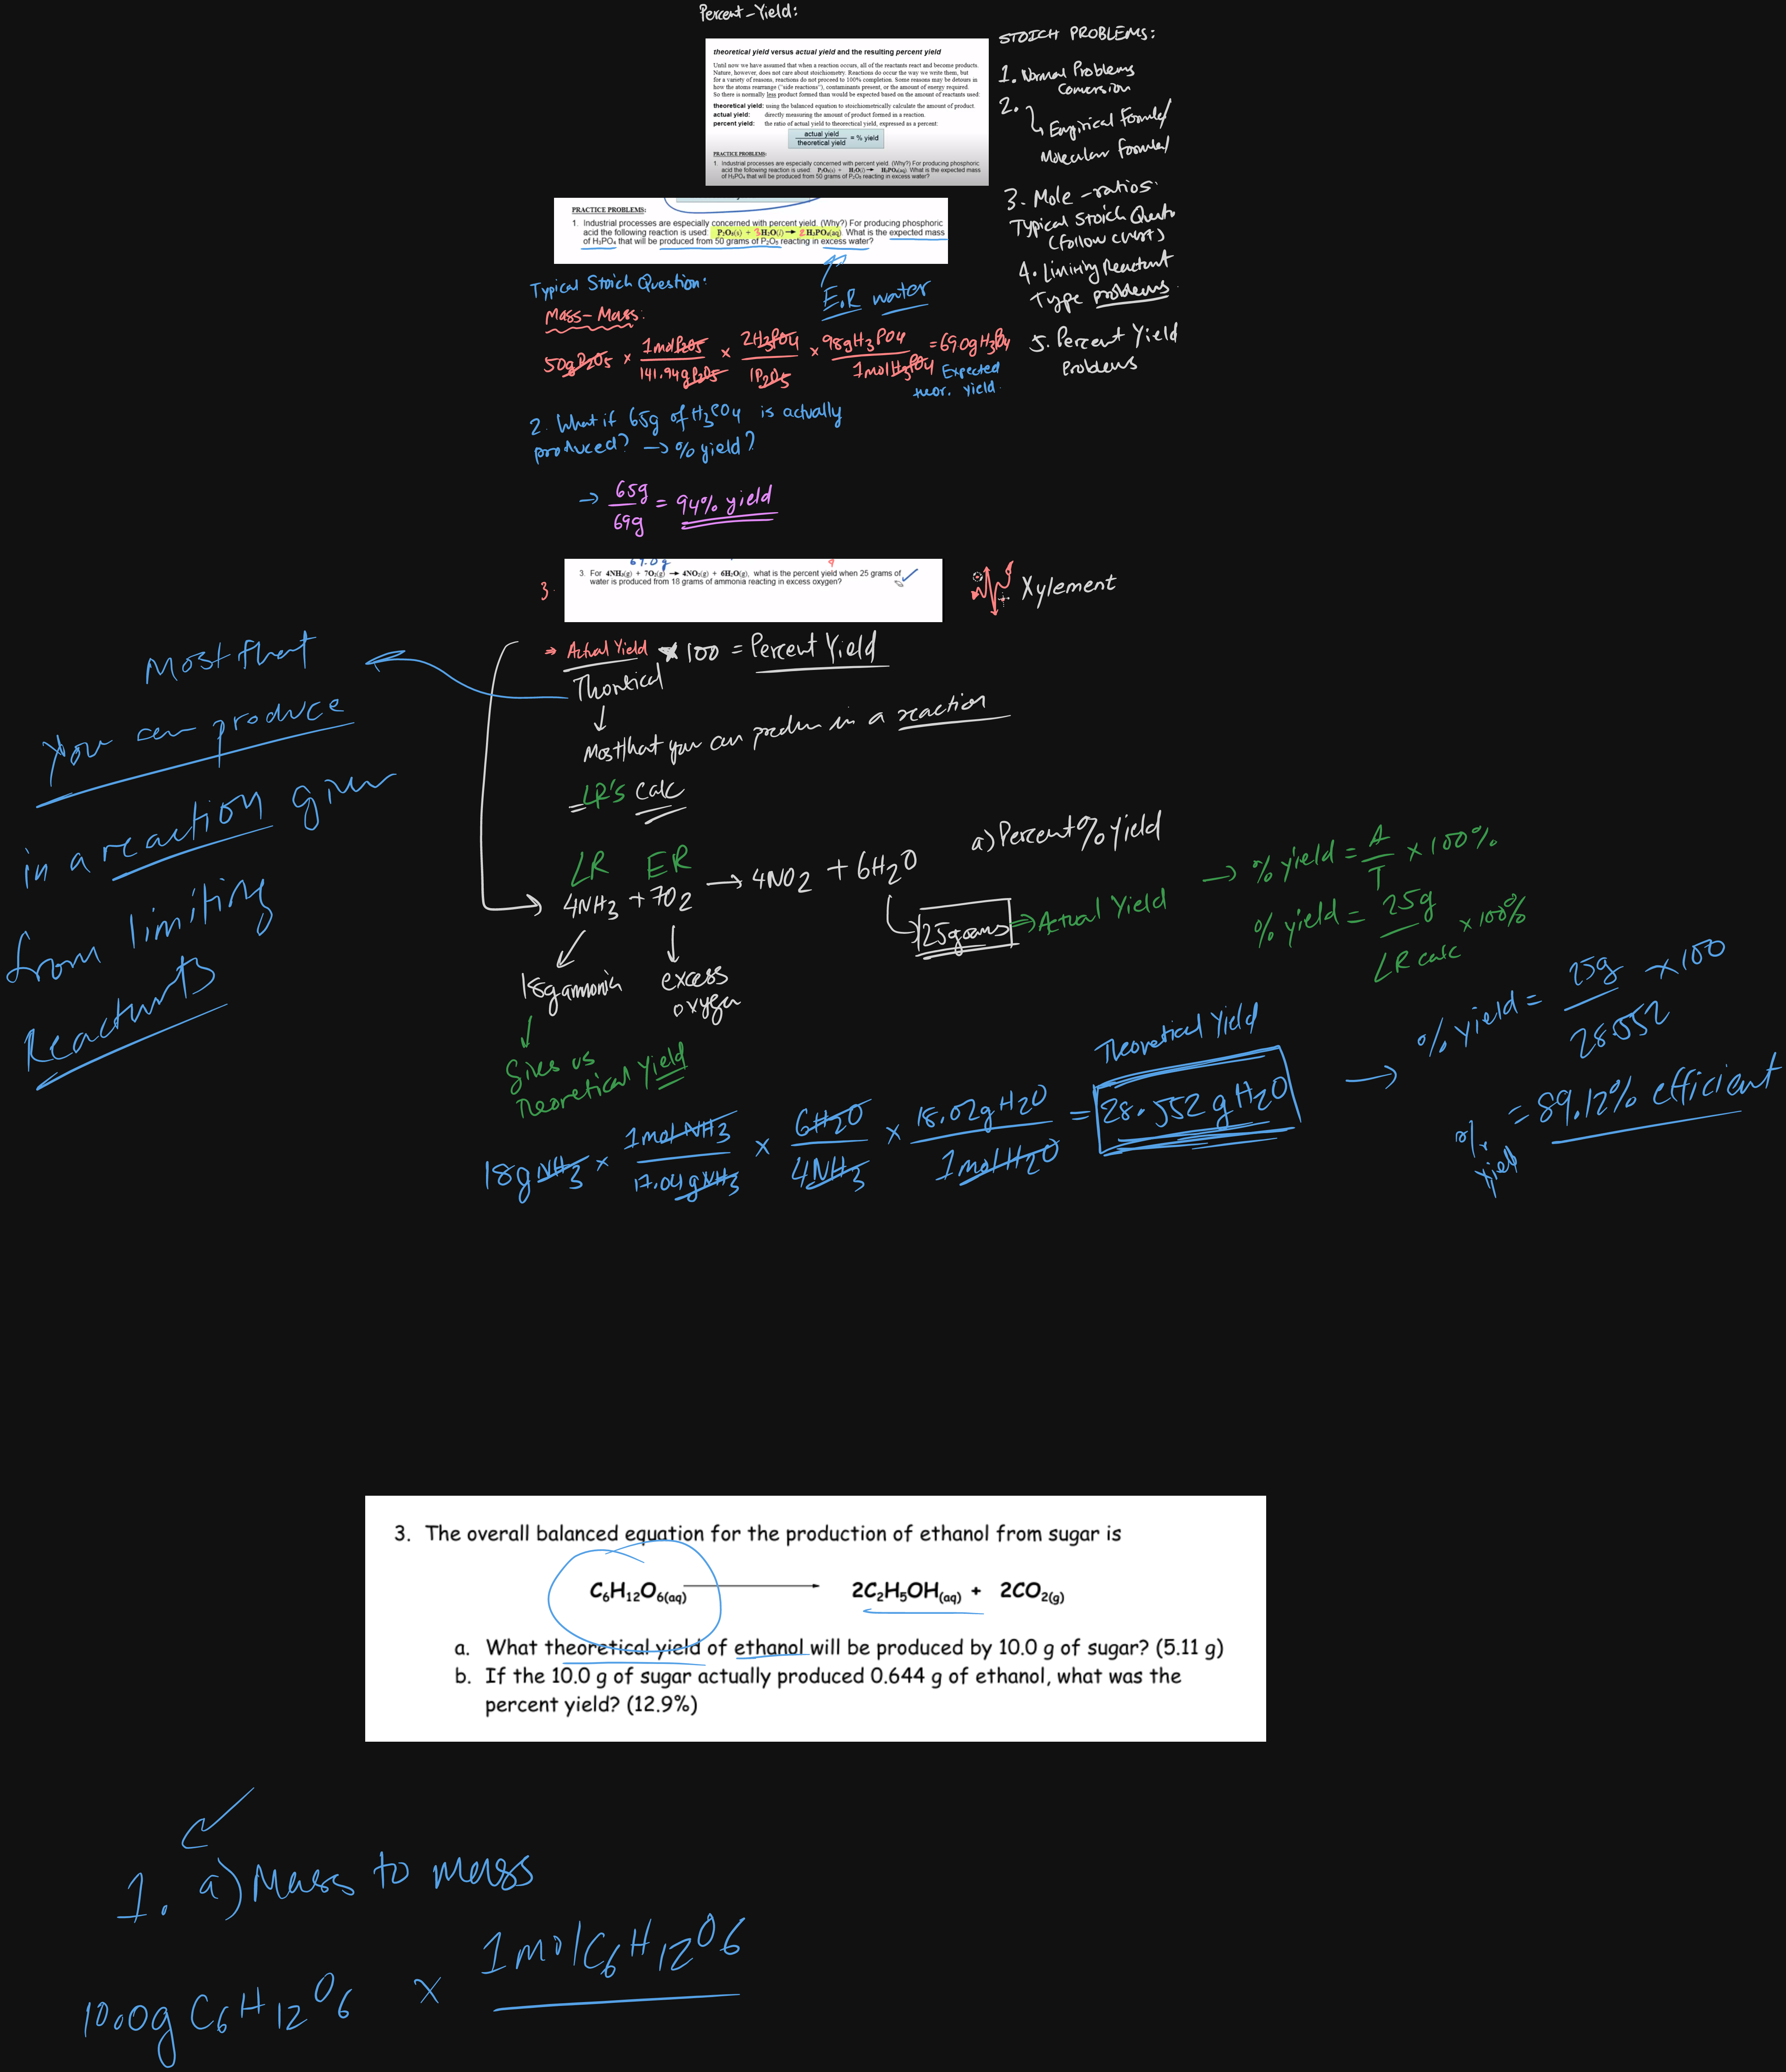 Percent-Yield:
theoretical yield versus actual yield and the resulting percent yield
Until now we have assumed that when a reaction occurs, all of the reactants react and become products.
Nature, however, does not care about stoichiometry. Reactions do occur the way we write them, but
for a variety of reasons, reactions do not proceed to 100% completion. Some reasons may be detours in
how the atoms rearrange ("side reactions"), contaminants present, or the amount of energy required.
So there is normally less product formed than would be expected based on the amount of reactants used:
theoretical yield: using the balanced equation to stoichiometrically calculate the amount of product.
actual yield: directly measuring the amount of product formed in a reaction.
percent yield: the ratio of actual yield to theorectical yield, expressed as a percent:
actual yield
theoretical yield = % yield
PRACTICE PROBLEMS:
1. Industrial processes are especially concerned with percent yield. (Why?) For producing phosphoric
acid the following reaction is used: P₂O₅(s) + H₂O(l) → H₃PO₄(aq). What is the expected mass
of H₃PO₄ that will be produced from 50 grams of P₂O₅ reacting in excess water?
STOICH PROBLEMS:
1. Normal Problems
Conversion
2.
↳ Empirical Formula/
Molecular formula/
3. Mole-ratios:
Typical Stoich Questn
(follow chart)
4. Limiting Reactant
Type problems.
5. Percent Yield
Problems
PRACTICE PROBLEMS:
1. Industrial processes are especially concerned with percent yield. (Why?) For producing phosphoric
acid the following reaction is used: P₂O₅(s) + 3H₂O(l) → 2H₃PO₄(aq). What is the expected mass
of H₃PO₄ that will be produced from 50 grams of P₂O₅ reacting in excess water?
Typical Stoich Question:
E.R water
Mass-Mass:
50g P₂O₅ × 1mol P₂O₅ / 141.94g P₂O₅ × 2H₃PO₄ / 1P₂O₅ × 98g H₃PO₄ / 1mol H₃PO₄ = 69.0g H₃PO₄
Expected
theor. yield.
2. What if 65g of H₃PO₄ is actually
produced? → % yield?
→ 65g / 69g = 94% yield
3.
3. For 4NH₃(g) + 7O₂(g) → 4NO₂(g) + 6H₂O(g), what is the percent yield when 25 grams of
water is produced from 18 grams of ammonia reacting in excess oxygen?
Xylement
→ Actual Yield / Thortical × 100 = Percent Yield
↓
Most that you can produ in a reaction
= LR's calc
Most that
You can produce
in a reaction given
from limiting
Reactants
a) Percent % Yield
LR ER
4NH₃ + 7O₂ → 4NO₂ + 6H₂O
25grams ⇒ Actual Yield
18g ammonia
excess
oxygen
Gives us
Theoretical Yield
→ % yield = A / T × 100%
% yield = 25g / LR calc × 100%
18g NH₃ × 1mol NH₃ / 17.04g NH₃ × 6H₂O / 4NH₃ × 18.02g H₂O / 1mol H₂O = 28.552 g H₂O
Theoretical Yield
→ % yield = 25g / 28.552 × 100
% yield = 89.12% efficient
3. The overall balanced equation for the production of ethanol from sugar is
C₆H₁₂O₆(aq) → 2C₂H₅OH(aq) + 2CO₂(g)
a. What theoretical yield of ethanol will be produced by 10.0 g of sugar? (5.11 g)
b. If the 10.0 g of sugar actually produced 0.644 g of ethanol, what was the
percent yield? (12.9%)
1. a) Mass to mass
10.0g C₆H₁₂O₆ × 1mol C₆H₁₂O₆